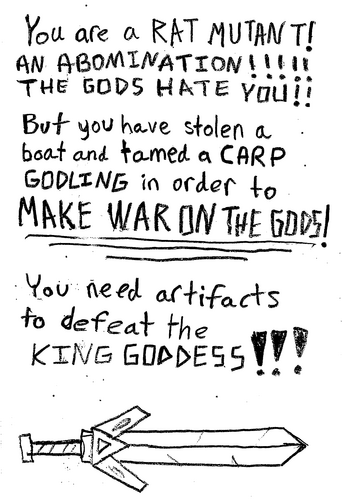 You are a RAT MUTANT!
AN ABOMINATION!!!!!
THE GODS HATE YOU!!
But you have stolen a
boat and tamed a CARP
GODLING in order to
MAKE WAR ON THE GODS!
You need artifacts
to defeat the
KING GODDESS!!!